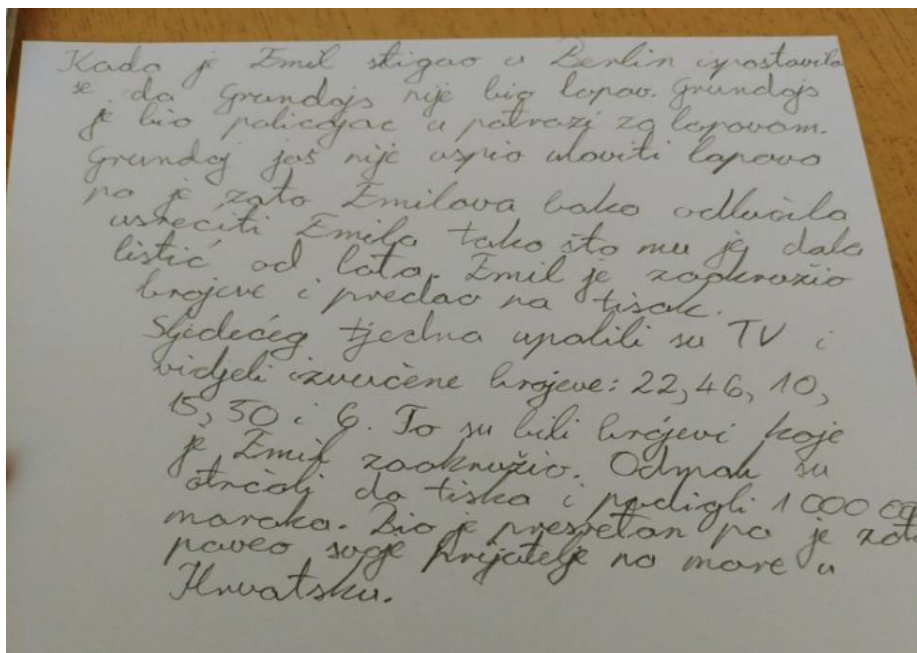 Kada je Emil stigao u Berlin ispostavilo
se da Grundajs nije bio lopov. Grundajs
je bio policajac u potrazi za lopovom.
Grundaj još nije uspio uloviti lopova
pa je zato Emilova baka odlučila
usrećiti Emila tako što mu je dala
listić od lota. Emil je zaokružio
brojeve i predao na tisak.
Sljedećeg tjedna upalili su TV i
vidjeli izvučene brojeve: 22, 46, 10,
15, 30 i 6. To su bili brojevi koje
je Emil zaokružio. Odmah su
otrčali do tiska i podigli 1 000 000
maraka. Bio je presretan pa je zato
poveo svoje prijatelje na more u
Hrvatsku.